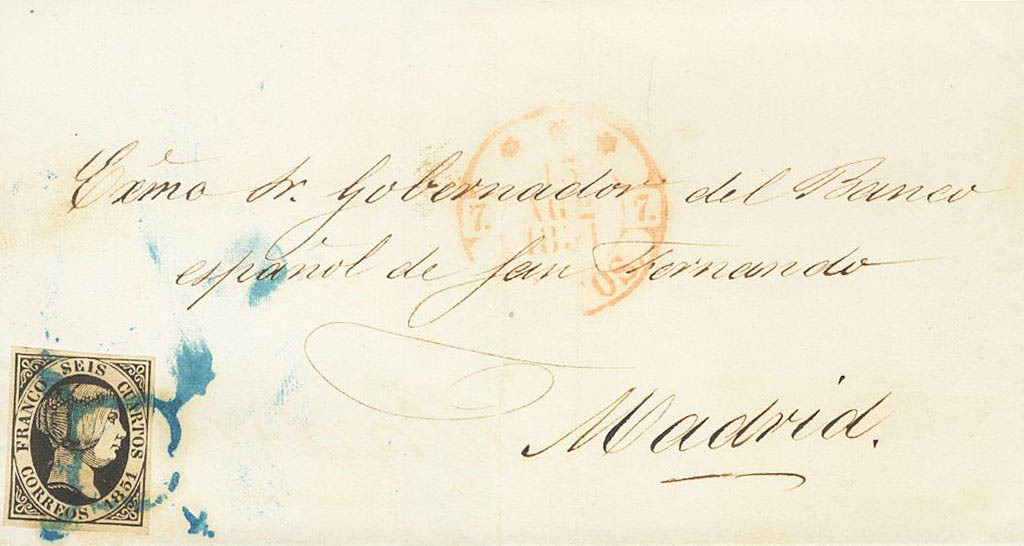 Exmo Sr. Gobernador del Banco
español de San Fernando
Madrid.
7. 15 7.
1851
FRANCO SEIS CUARTOS
CORREOS 1851